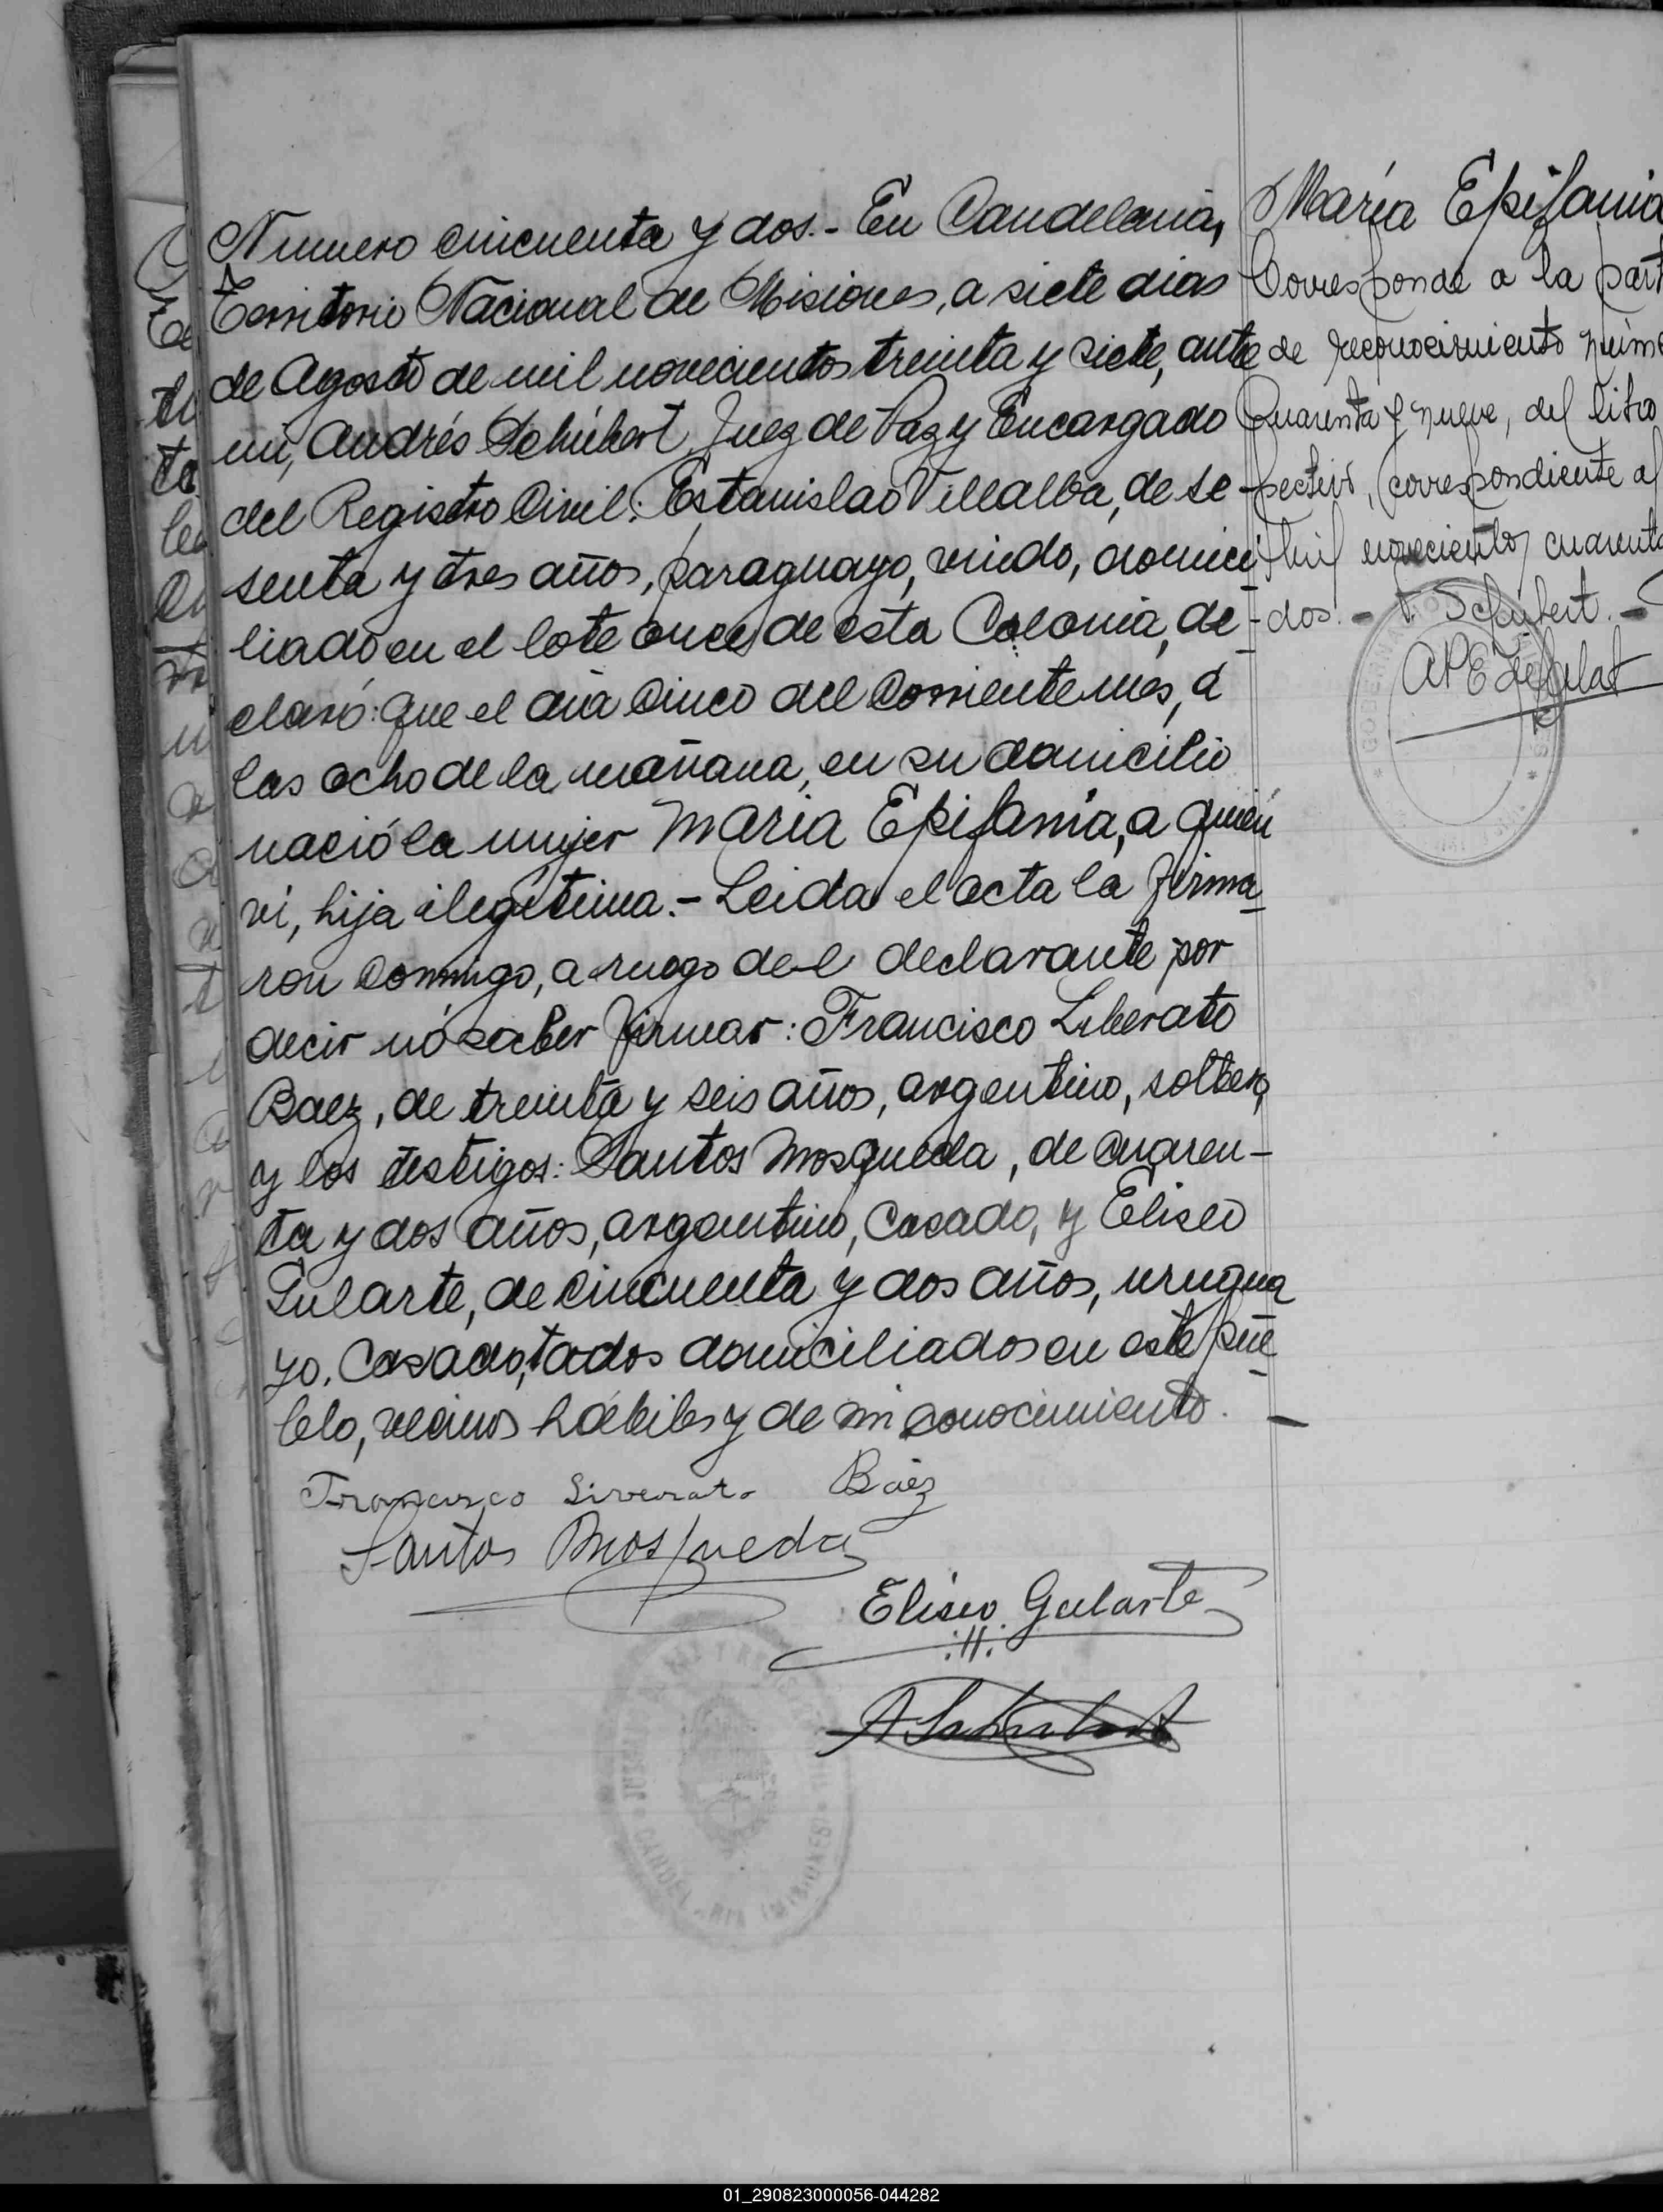 Número cincuenta y dos.- En Candelaria,
Territorio Nacional de Misiones, a siete dias
de Agosto de mil novecientos treinta y siete, ante
mi, Andrés Schúbert, Juez de Paz y Encargado
del Registro Civil: Estanislao Villalba, de se-
senta y tres años, paraguayo, viudo, domici
liado en el lote once de esta Colonia, de-
claró: que el dia cinco del corriente mes, á
las ocho de la mañana, en su domicilio
nació la mujer Maria Epifania, a quién
ví, hija ilegítima.- Leida el acta la firma-
ron conmigo, a ruego del declarante por
decir nó saber firmar: Francisco Liberato
Baez, de treinta y seis años, argentino, soltero,
y los testigos: Santos Mosqueda, de cuaren-
ta y dos años, argentino, casado, y Eliseo
Gularte, de cincuenta y dos años, urugua
yo, casado, todos domiciliados en este pue-
blo, vecinos hábiles y de mi conocimiento. -
Francisco Liverato Báez
Santos Mosqueda
Eliseo Gularte
A Schubert
María Epifania
Corresponde a la part
de reconocimiento núme
Cuarenta y nueve, del libro
pectivo, correspondiente al
mil novecientos cuarenta
dos. - Schúbert. -
CANDELARIA (MISIONES)
01_290823000056-044282